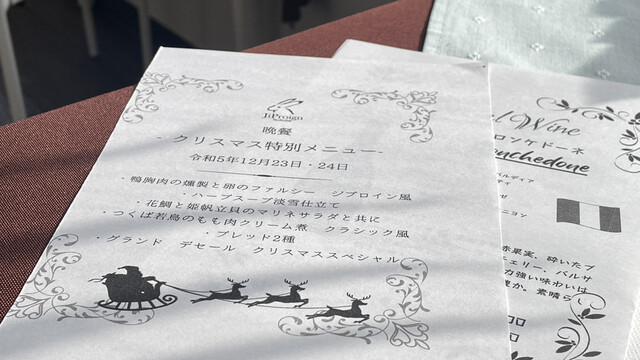 JiProign
晩餐
- クリスマス特別メニュー -
令和5年12月23日・24日
・鴨胸肉の燻製と卵のファルシー ジブロイン風
・ハーブスープ淡雪仕立て
・花鯛と姫帆立貝のマリネサラダと共に
・つくば若鳥のもも肉クリーム煮 クラシック風
・ブレッド2種
・グランド デセール クリスマススペシャル
Wine
ロンケドーネ
nchedone
ベルディア
ティ
ニョン
赤果実、砕いたブ
ェリー、バルサ
力強い味わいは
豊か。素晴ら